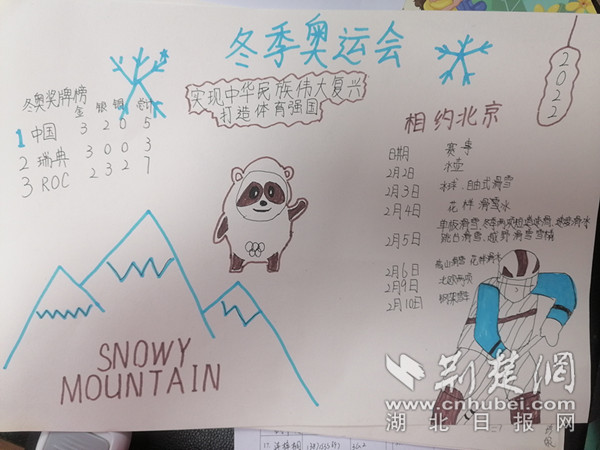 冬季奥运会
2022
冬奥奖牌榜
金 银 铜 总计
1 中国 3 2 0 5
2 瑞典 3 0 0 3
3 ROC 2 3 2 7
实现中华民族伟大复兴
打造体育强国
相约北京
日期 赛事
2月2日 冰壶
2月3日 冰球、自由式滑雪
2月4日 花样滑
2月5日
跳台滑雪、越野滑雪
2月6日 高山滑雪 花样滑冰
2月9日 北欧两项
2月10日 钢架雪车
SNOWY
MOUNTAIN
荆楚网
www.cnhubei.com
湖北日报网